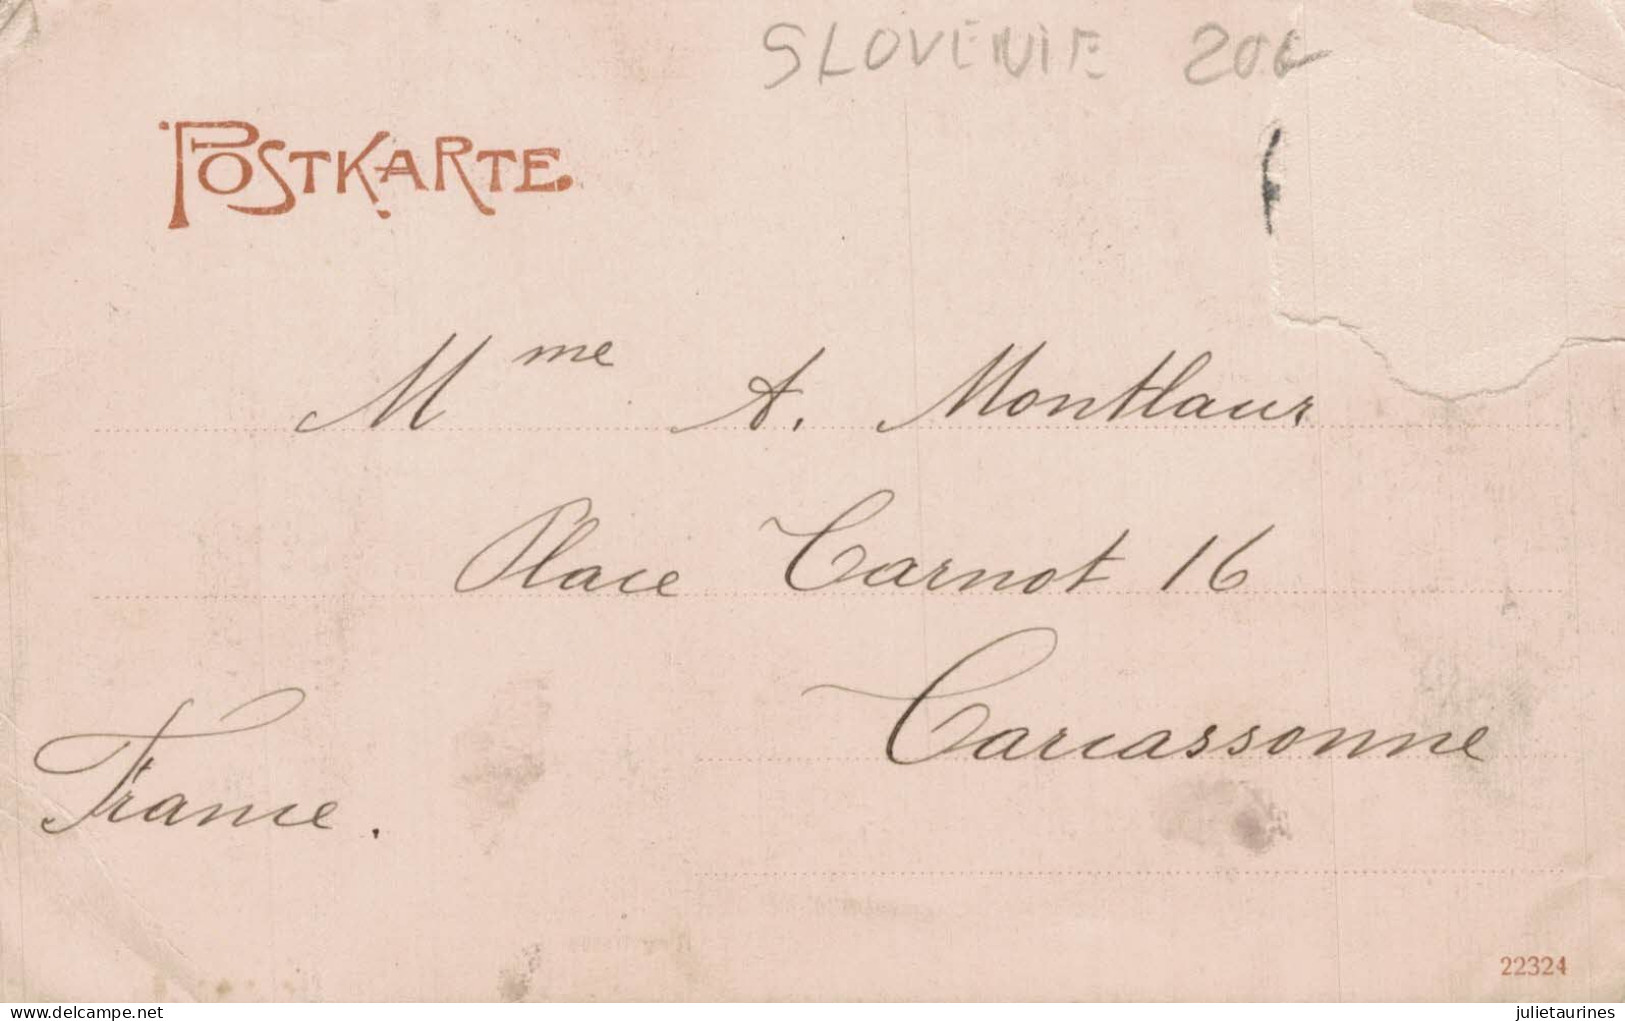 SLOVENIE 20€
POSTKARTE.
Mme A. Montlaur
Place Carnot 16
Carcassonne
France.
22324
delcampe.net
julietaurines